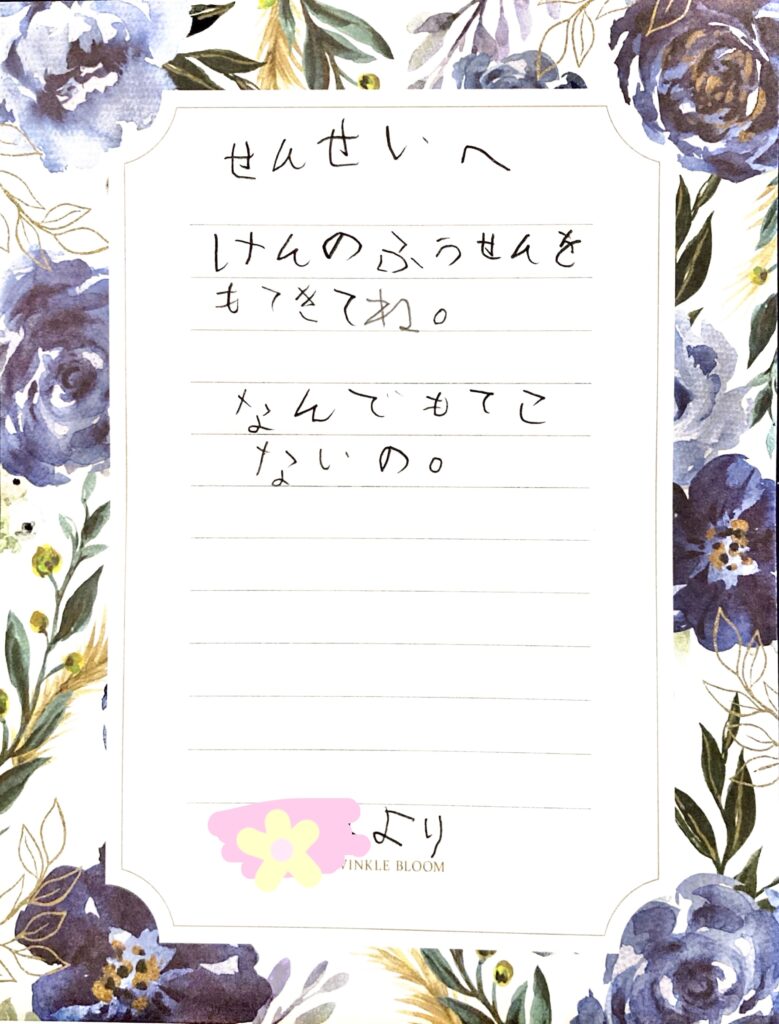 せんせいへ
けんのふうせんを
もてきてね。
なんでもてこ
ないの。
より
WINKLE BLOOM